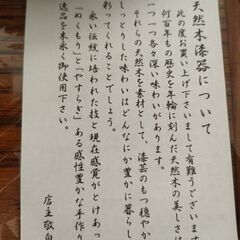 天然木漆器について
此の度お買い上げ下さいまして有難うございます
何百年もの歴史を年輪に刻んだ天然木の美しさ
一つ一つ各々深い味わいがあります。
それらの天然木を素材として、漆芸のもつ穏やか
しっとりした味わいはどんなにか豊かに暮らし
彩ってくれることでしょう。
永い伝統に培われた技と現在感覚がとけあっ
「ぬくもり」と「やすらぎ」ある感性豊かな手作り
逸品を末永く御使用下さい。
店主敬白